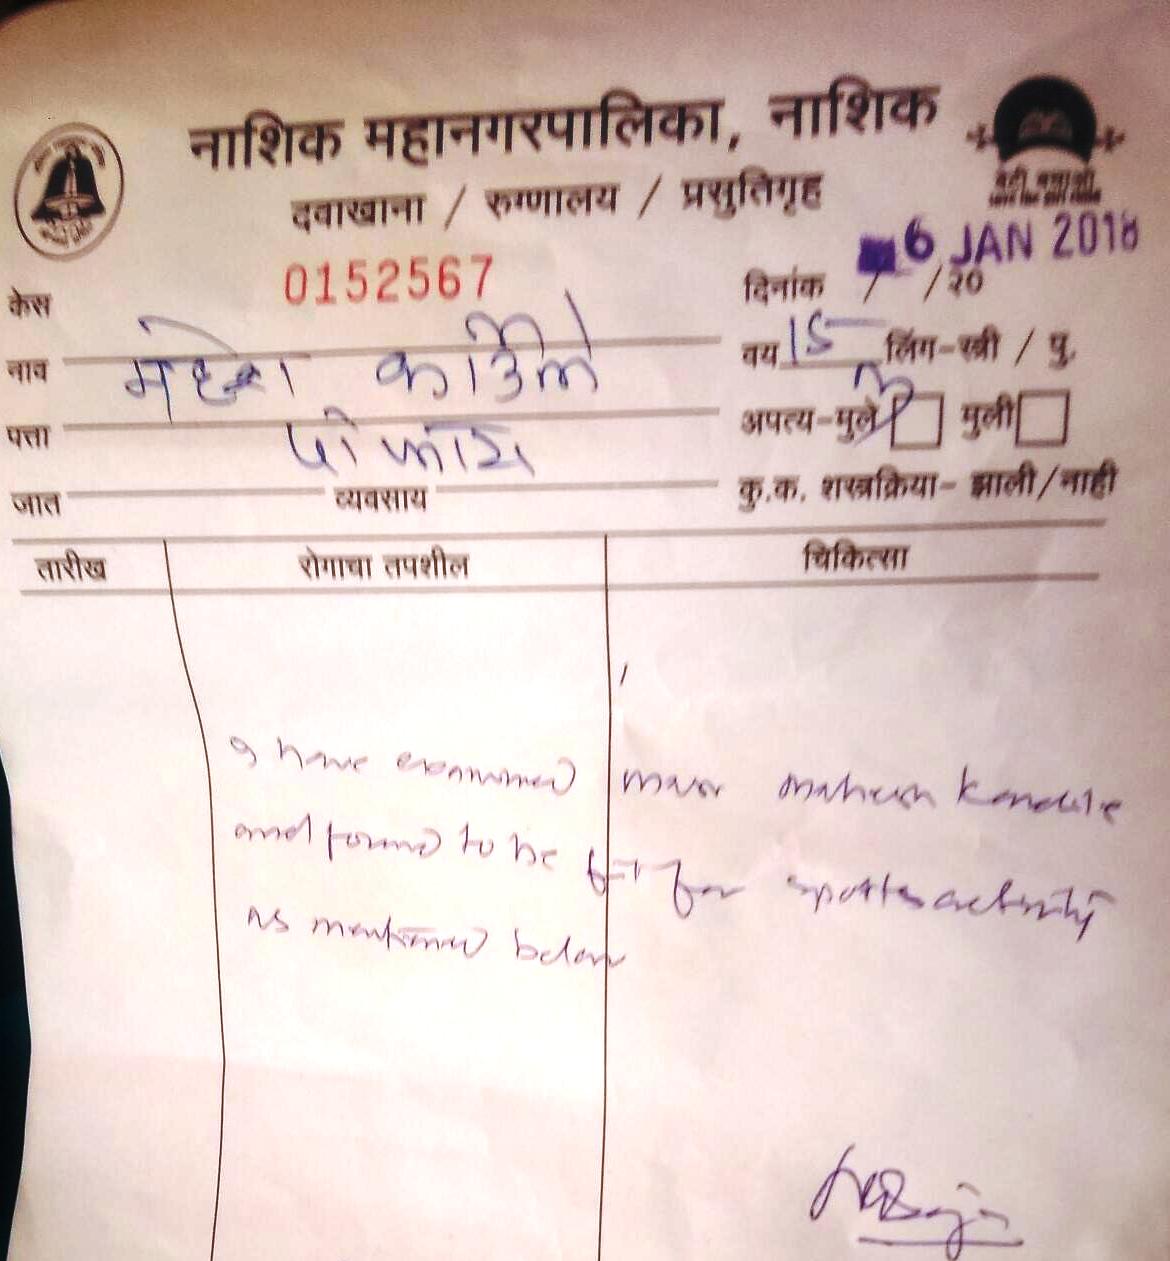 नाशिक महानगरपालिका, नाशिक
दवाखाना / रुग्णालय / प्रसुतिगृह
6 JAN 2018
केस 0152567 दिनांक / /२०
नाव महेश वय 15 लिंग-स्त्री / पु.
पत्ता अपत्य-मुले मुली
जात व्यवसाय कु.क. शस्त्रक्रिया- झाली/नाही
तारीख रोगाचा तपशील चिकित्सा
I have examined mahesh
and found to be fit for sports activity
as mentioned below